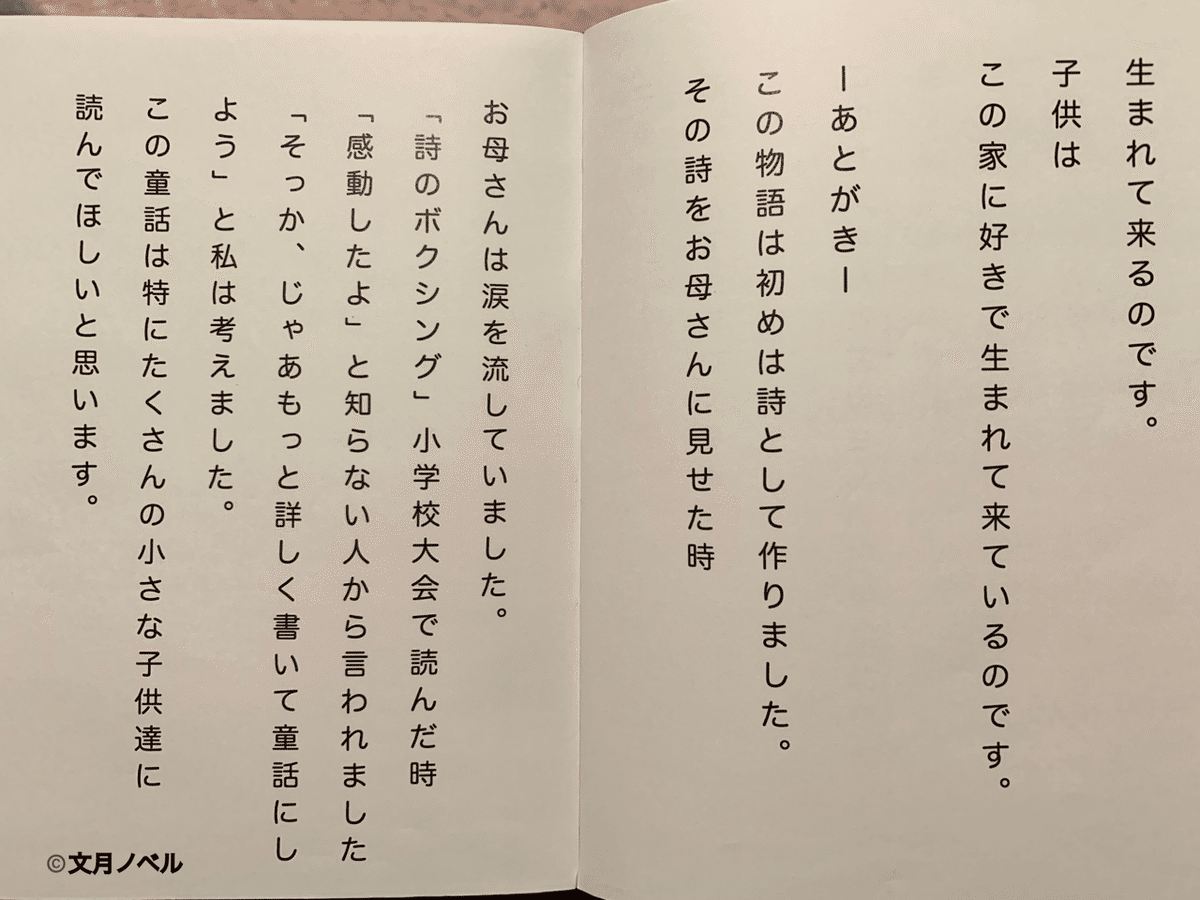 生まれて来るのです。
子供は
この家に好きで生まれて来ているのです。
ーあとがきー
この物語は初めは詩として作りました。
その詩をお母さんに見せた時
お母さんは涙を流していました。
「詩のボクシング」小学校大会で読んだ時
「感動したよ」と知らない人から言われました
「そっか、じゃあもっと詳しく書いて童話にし
よう」と私は考えました。
この童話は特にたくさんの小さな子供達に
読んでほしいと思います。
©文月ノベル